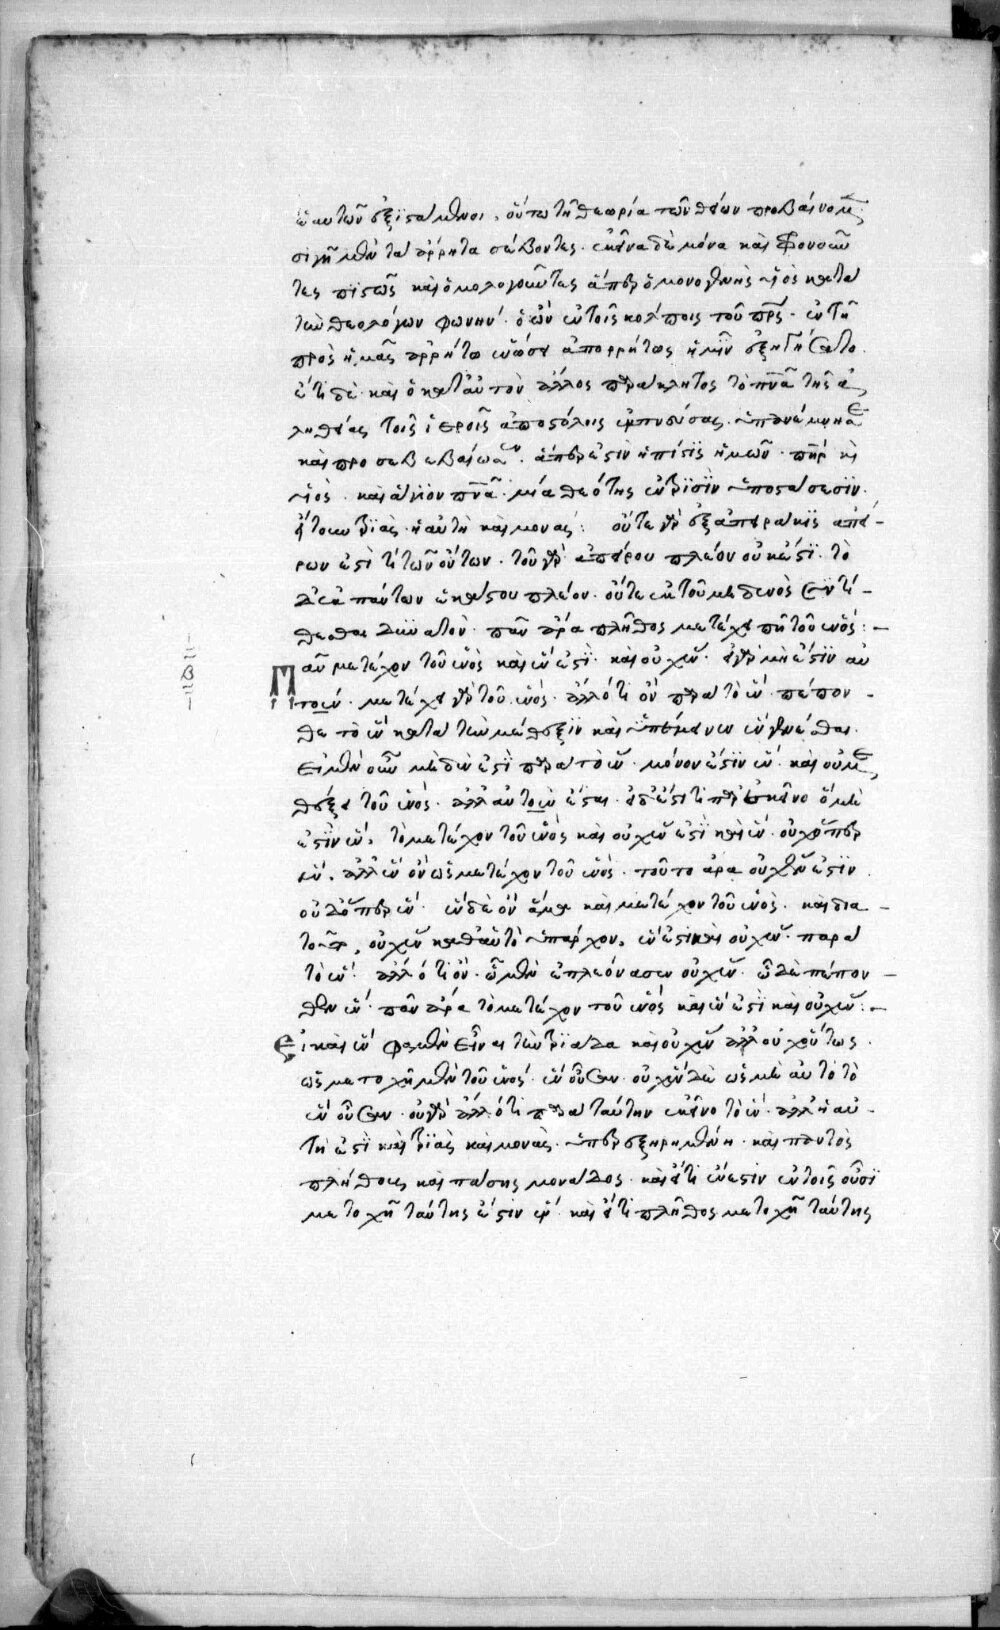 ἑαυτῶν ἐξιστάμενοι, οὕτω τῇ θεωρίᾳ τῶν θείων προβαίνομεν·
σιγῇ μὲν τὰ ἄρρητα σέβοντες. ἐκεῖνα δὲ μόνα καὶ φρονοῦν
τες πιστῶς καὶ ὁμολογοῦντες ἅπερ ὁ μονογενὴς υἱὸς κατὰ
τὴν θεολόγον φωνήν· ὁ ὢν ἐν τοῖς κόλποις τοῦ πρς· ἐν τῇ
πρὸς ἡμᾶς ἀρρήτω ἑνώσει ἀπορρήτως ἡμῖν ἐξηγήσατο.
ἔτι δὲ καὶ ὁ κατ' αὐτὸν ἄλλος παράκλητος τὸ πνα τῆς ἀ
ληθείας τοῖς ἱεροῖς ἀποστόλοις ἐμπνεύσας. ὑπανέμνησε
καὶ προσεβεβαίωσεν. ἅπερ ἐστὶν ἡ πίστις ἡμῶν· πηρ κὶ
υἱὸς· καὶ ἅγιον πνα· μία θεότης ἐν τρισὶν ὑποστάσεσιν.
ἤτουν τριὰς ἡ αὐτὴ καὶ μονάς: οὔτε γὰρ ἐξ ἀπειράκις ἀπεί-
ρων ἐστί τι τῶν ὄντων· τοῦ γὰρ ἀπείρου πλέον οὐκ ἔστι· τὸ
δὲ ἐκ πάντων ἑκάστου πλέον· οὔτε ἐκ τοῦ μηδενὸς συντί-
θεσθαι δυνατόν· πᾶν ἄρα πλῆθος μετέχει πῃ τοῦ ἑνός:-
Πᾶν μετέχον τοῦ ἑνὸς καὶ ἕν ἐστι· καὶ οὐχ ἕν· εἰ γὰρ μή ἐστιν αὐ
τοέν· μετέχει γὰρ τοῦ ἑνός· ἄλλό τι ὂν παρὰ τὸ ἕν· πέπον-
θε τὸ ἓν κατὰ τὴν μέθεξιν καὶ ὑπέμεινεν ἓν γενέσθαι.
εἰ μὲν οὖν μηδέν ἐστι παρὰ τὸ ἕν· μόνον ἐστὶν ἕν· καὶ οὐ με
θέξει τοῦ ἑνός· ἀλλ' αὐτοὲν ἔσται· εἰ δ' ἔστι τι παρ' ἐκεῖνο ὃ μή
ἐστιν ἕν, τὸ μετέχον τοῦ ἑνὸς καὶ οὐχ ἕν ἐστι καὶ ἕν· οὐχ ὅπερ
ἕν· ἀλλ' ἓν ὂν ὡς μετέχον τοῦ ἑνός· τοῦτο ἄρα οὐχ ἕν ἐστιν
οὐδ' ὅπερ ἕν· ἓν δὲ ὂν ἅμα καὶ μετέχον τοῦ ἑνός· καὶ δια-
τοῦτο, οὐχ ἓν καθ' αὑτὸ ὑπάρχον, ἕν ἐστι καὶ οὐχ ἕν· παρὰ
τὸ ἓν· ἄλλό τι ὄν· ᾧ μὲν ἐπλεόνασεν οὐχ ἕν· ᾧ δὲ πέπον-
θεν ἕν· πᾶν ἄρα τὸ μετέχον τοῦ ἑνὸς καὶ ἕν ἐστι καὶ οὐχ ἕν:-
Εἰ καὶ ἕν φαμεν εἶναι τὴν τριάδα καὶ οὐχ ἓν ἀλλ' οὐχ οὕτως
ὡς μετοχῇ μὲν τοῦ ἑνὸς· ἓν οὖσαν· οὐχ ἓν δὲ ὡς μὴ αὐτὸ τὸ
ἓν οὖσαν· οὐ γὰρ ἄλλό τι παρὰ ταύτην ἐκεῖνο τὸ ἕν· ἀλλ' ἡ αὐ-
τή ἐστι καὶ τριὰς καὶ μονὰς· ὑπερεξῃρημένη· καὶ παντὸς
πλήθους καὶ πάσης μονάδος· καὶ εἴ τι ἕν ἐστιν ἐν τοῖς οὖσι
μετοχῇ ταύτης ἐστὶν ἕν· καὶ εἴ τι πλῆθος μετοχῇ ταύτης